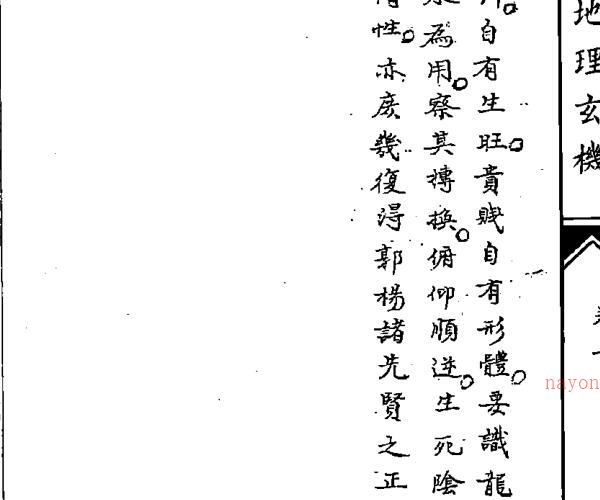 地理玄機
自有生旺。貴賤自有形體。要識龍
為用。察其摶換。俯仰順逆。生死陰
性。亦庶幾復得郭楊諸先賢之正
nayon